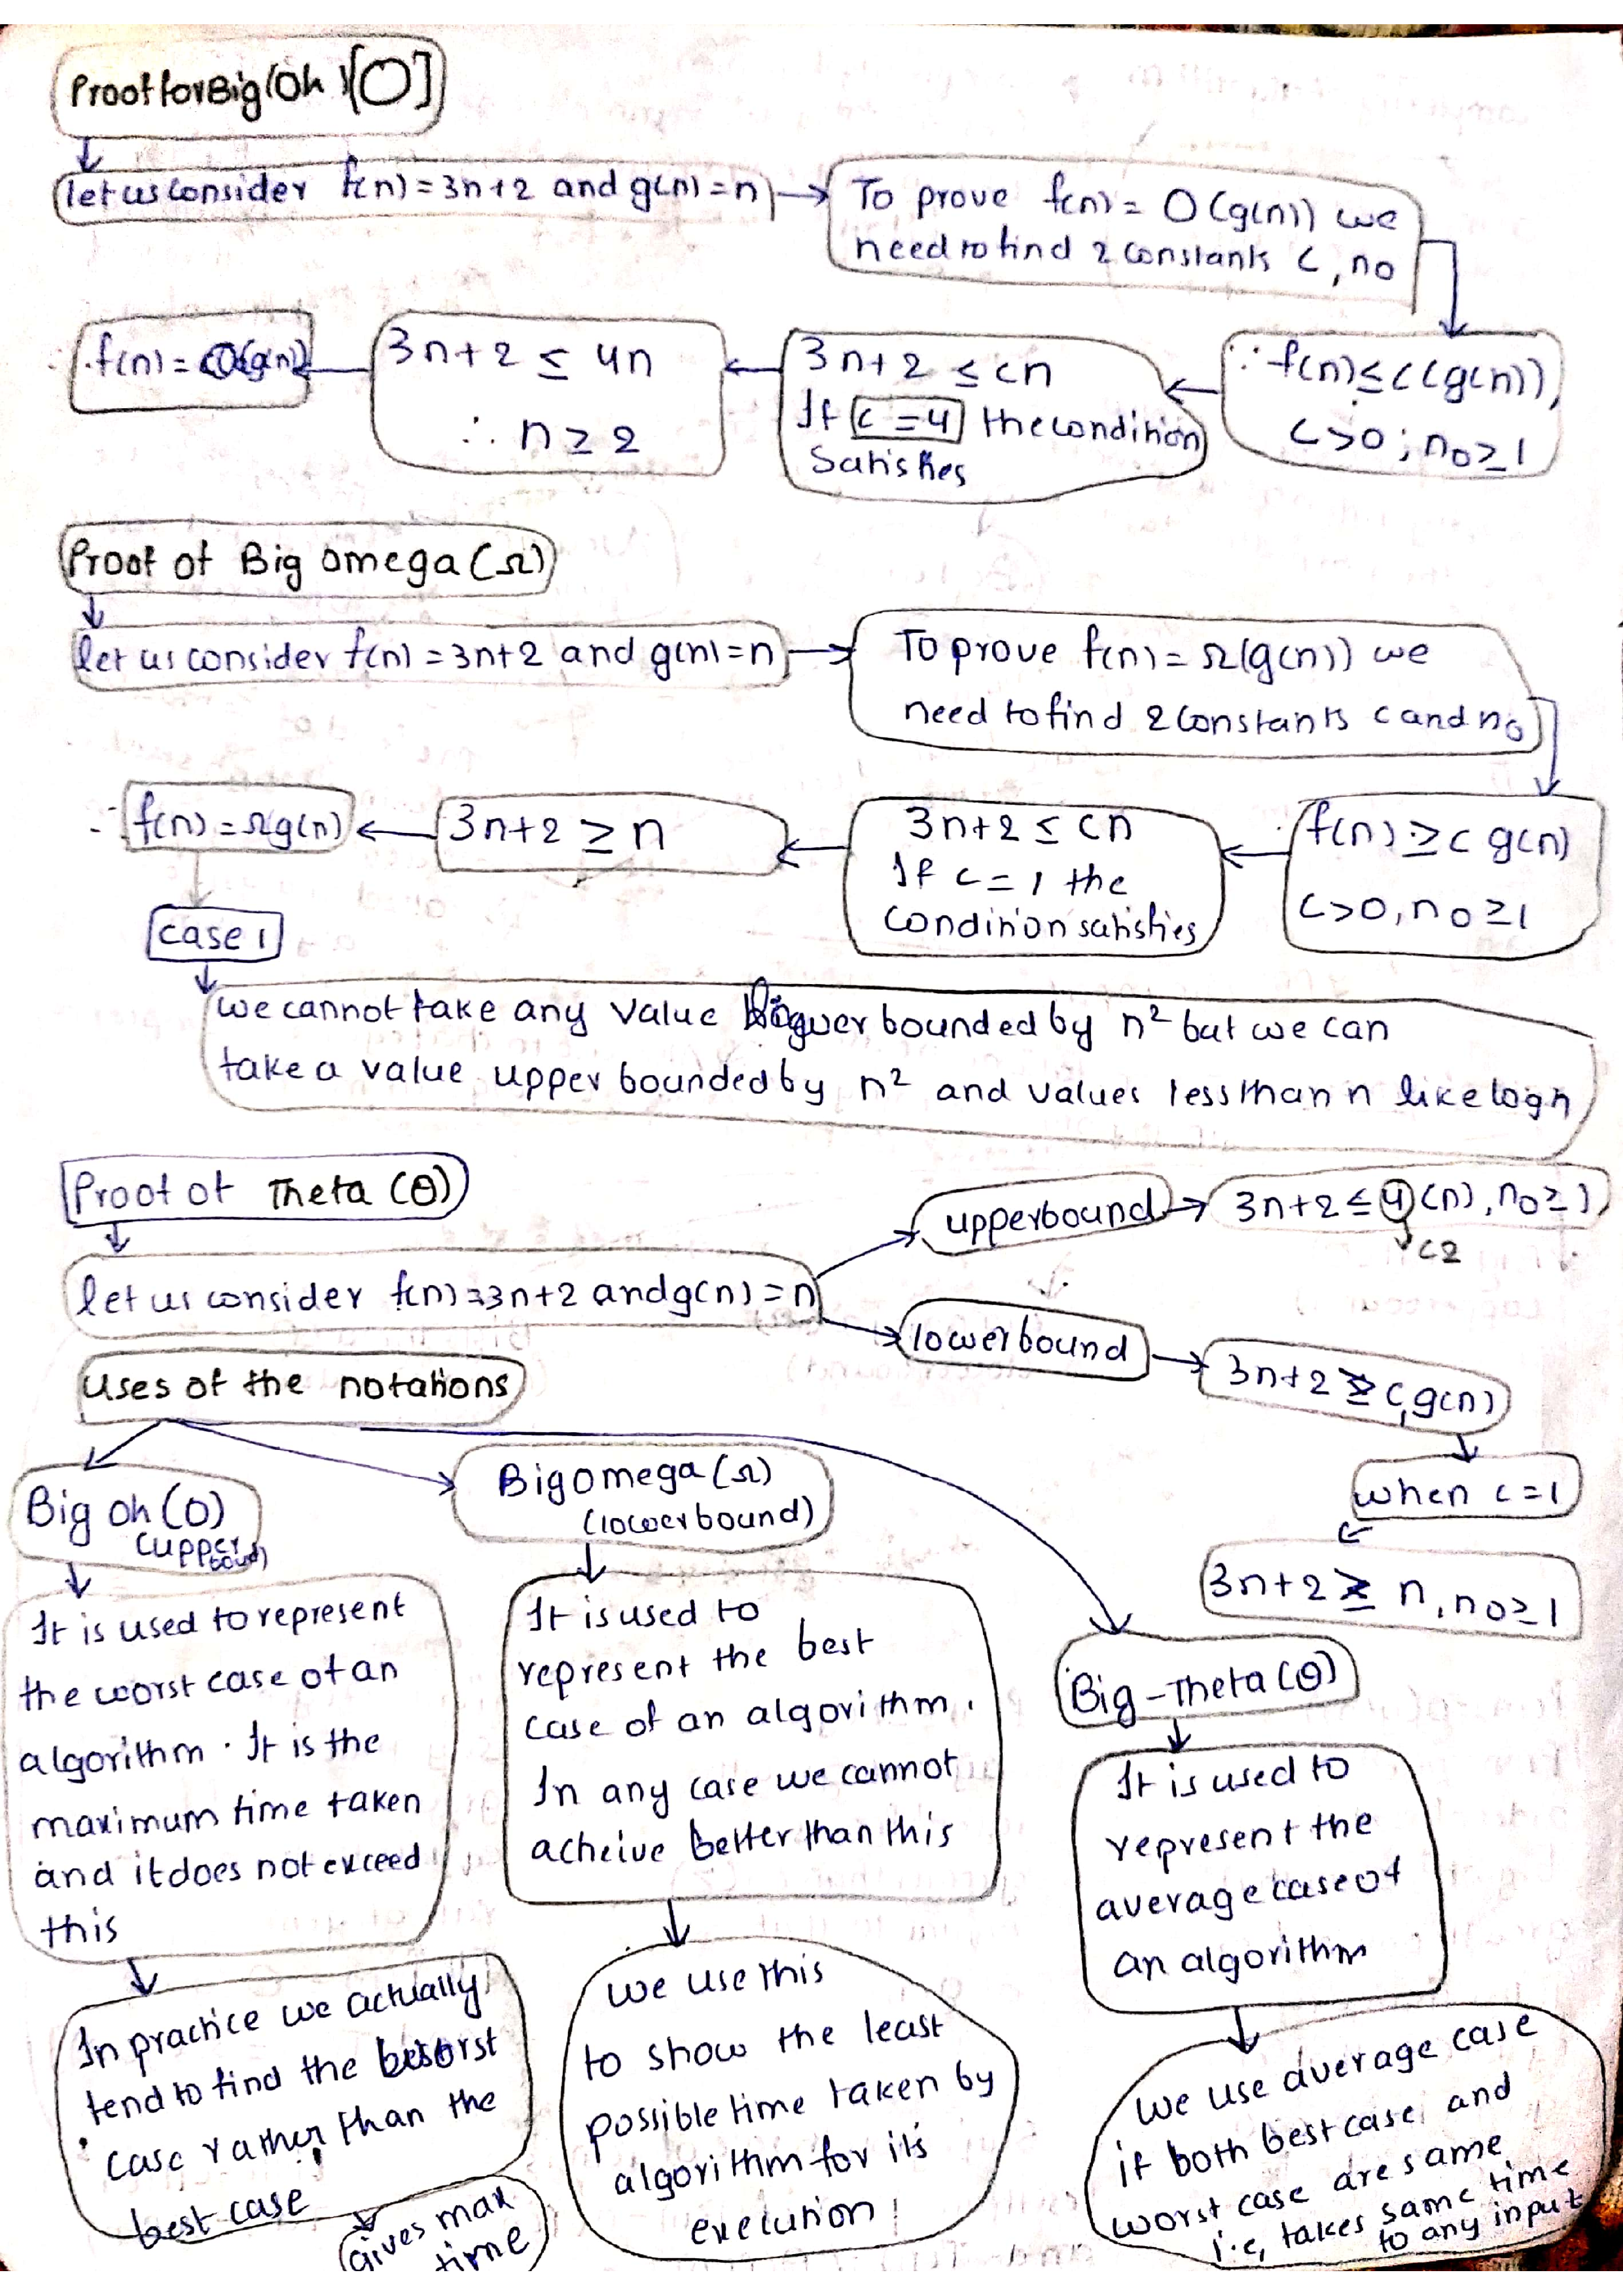 Proof for Big(Oh)[O]
let us consider f(n) = 3n+2 and g(n) = n
To prove f(n) = O(g(n)) we
need to find 2 constants c, n0
∵ f(n) ≤ c(g(n)),
c>0; n0≥1
3n+2 ≤ cn
If c=4 the condition
Satisfies
3n+2 ≤ 4n
∴ n≥2
∴ f(n) = O(g(n))
Proof of Big omega (Ω)
let us consider f(n) = 3n+2 and g(n)=n
To prove f(n) = Ω(g(n)) we
need to find 2 constants c and n0
f(n) ≥ c g(n)
c>0, n0≥1
3n+2 ≤ cn
If c=1 the
condition satisfies
3n+2 ≥ n
∴ f(n) = Ωg(n)
case 1
we cannot take any value bounded by n² but we can
take a value upper bounded by n² and values less than n like log n
Proof of Theta (θ)
let us consider f(n)=3n+2 and g(n) = n
upperbound
3n+2 ≤ 4(n), n0≥1
c2
lowerbound
3n+2 ≥ c,g(n)
when c=1
3n+2 ≥ n, n0≥1
Uses of the notations
Big oh (O)
(upper
bound)
It is used to represent
the worst case of an
algorithm. It is the
maximum time taken
and it does not exceed
this
In practice we actually
tend to find the worst
case rather than the
best case
Gives max
time
Big omega (Ω)
(lower bound)
It is used to
represent the best
case of an algorithm.
In any case we cannot
acheive better than this
we use this
to show the least
possible time taken by
algorithm for its
execution
Big-Theta (θ)
It is used to
represent the
average case of
an algorithm
we use average case
if both best case and
worst case are same
i.e, takes same time
to any input